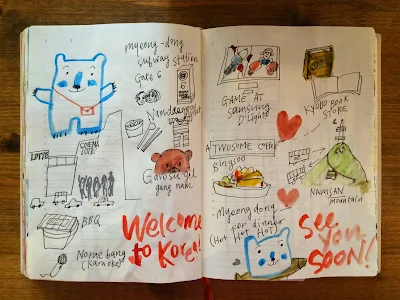 myeong-dong
subway station
Gate 6
Namdaemun
LOTTE
CINEMA
Garosu-gil
gang nam
BBQ
Norae bang
(karaoke)
Welcome
to Korea!
GAME AT
Samsung
D'Light
KYOBO BOOK
STORE
A TWOSOME COFFEE
Bingsoo
NAMSAN
mountain
Myeongdong
for dinner
(Hot Hot Hot)
SEE
YOU
SOON!